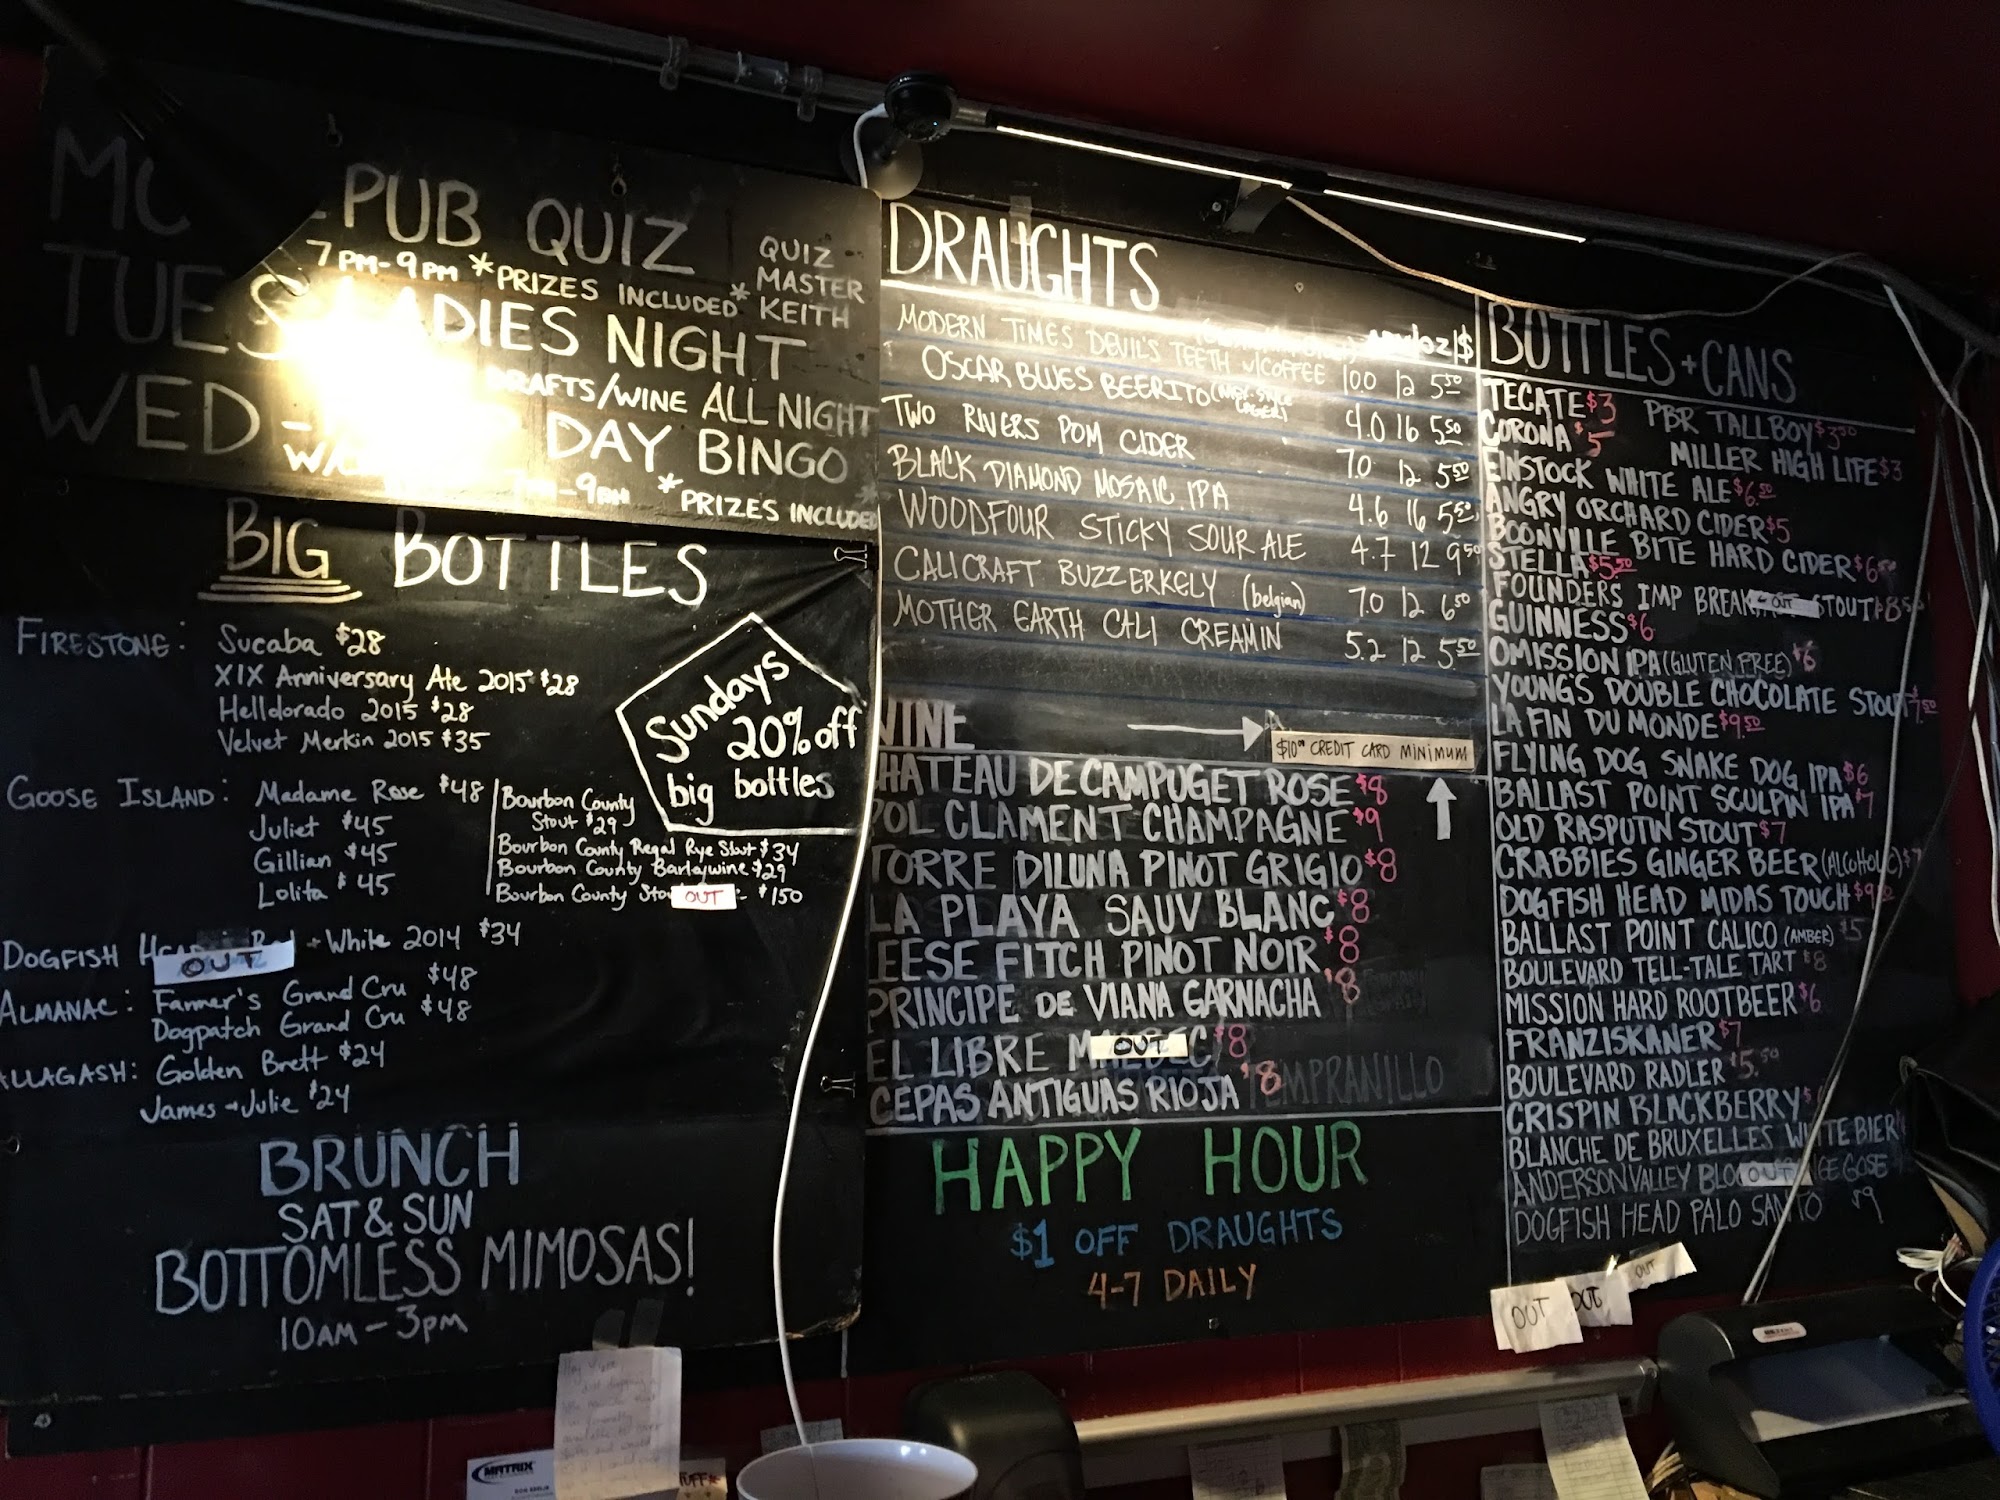 PUB QUIZ
7PM-9PM *PRIZES INCLUDED*
QUIZ
MASTER
KEITH
TUES
LADIES NIGHT
DRAFTS/WINE ALL NIGHT
WED - DAY BINGO
9PM *PRIZES INCLUDED
BIG BOTTLES
FIRESTONE: Sucaba $28
XIX Anniversary Ale 2015 $28
Helldorado 2015 $28
Velvet Merkin 2015 $35
Sundays
20% off
big bottles
GOOSE ISLAND: Madame Rose $48
Juliet $45
Gillian $45
Lolita $45
Bourbon County
Stout $29
Bourbon County Regal Rye Stout $34
Bourbon County Barleywine $29
Bourbon County OUT $150
DOGFISH OUT + White 2014 $34
ALMANAC: Farmer's Grand Cru $48
Dogpatch Grand Cru $48
ALLAGASH: Golden Brett $24
James + Julie $24
BRUNCH
SAT & SUN
BOTTOMLESS MIMOSAS!
10AM - 3PM
DRAUGHTS
MODERN TIMES DEVIL'S TEETH W/COFFEE 10.0 12 5.50
OSCAR BLUES BEERITO 4.0 16 5.50
TWO RIVERS POM CIDER 7.0 12 5.50
BLACK DIAMOND MOSAIC IPA 4.6 16 5.50
WOODFOUR STICKY SOUR ALE 4.7 12 9.50
CALICRAFT BUZZERKELY (belgian) 7.0 12 6.50
MOTHER EARTH CALI CREAMIN 5.2 12 5.50
WINE
$10 CREDIT CARD MINIMUM
CHATEAU DE CAMPUGET ROSE $8
POL CLAMENT CHAMPAGNE $9
TORRE DILUNA PINOT GRIGIO $8
LA PLAYA SAUV BLANC $8
LEESE FITCH PINOT NOIR $8
PRINCIPE DE VIANA GARNACHA $8
EL LIBRE OUT $8
CEPAS ANTIGUAS RIOJA $8 TEMPRANILLO
HAPPY HOUR
$1 OFF DRAUGHTS
4-7 DAILY
BOTTLES + CANS
TECATE $3 PBR TALLBOY $3.50
CORONA $5 MILLER HIGH LIFE $3
EINSTOCK WHITE ALE $6.50
ANGRY ORCHARD CIDER $5
BOONVILLE BITE HARD CIDER $6.50
STELLA $5.50
FOUNDERS IMP OUT STOUT $8.50
GUINNESS $6
OMISSION IPA (GLUTEN FREE) $6
YOUNG'S DOUBLE CHOCOLATE STOUT $7.50
LA FIN DU MONDE $9.50
FLYING DOG SNAKE DOG IPA $6
BALLAST POINT SCULPIN IPA $7
OLD RASPUTIN STOUT $7
CRABBIES GINGER BEER (ALCOHOLIC) $7
DOGFISH HEAD MIDAS TOUCH $9.50
BALLAST POINT CALICO (AMBER) $5
BOULEVARD TELL-TALE TART $8
MISSION HARD ROOTBEER $6
FRANZISKANER $7
BOULEVARD RADLER $5.50
CRISPIN BLACKBERRY
BLANCHE DE BRUXELLES WHITE BIER
ANDERSON VALLEY OUT GOSE
DOGFISH HEAD PALO SANTO $9
OUT OUT OUT
MATRIX